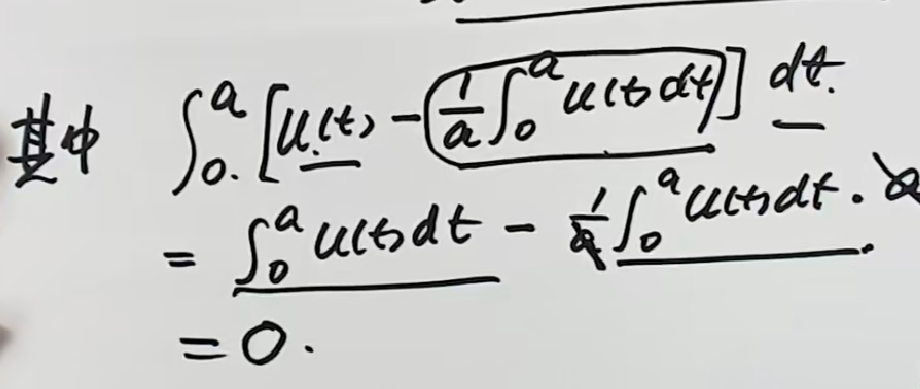 其中 ∫₀ᵃ [u(t) - (1/a ∫₀ᵃ u(t) dt)] dt.
= ∫₀ᵃ u(t) dt - 1/a ∫₀ᵃ u(t) dt · a
= 0.